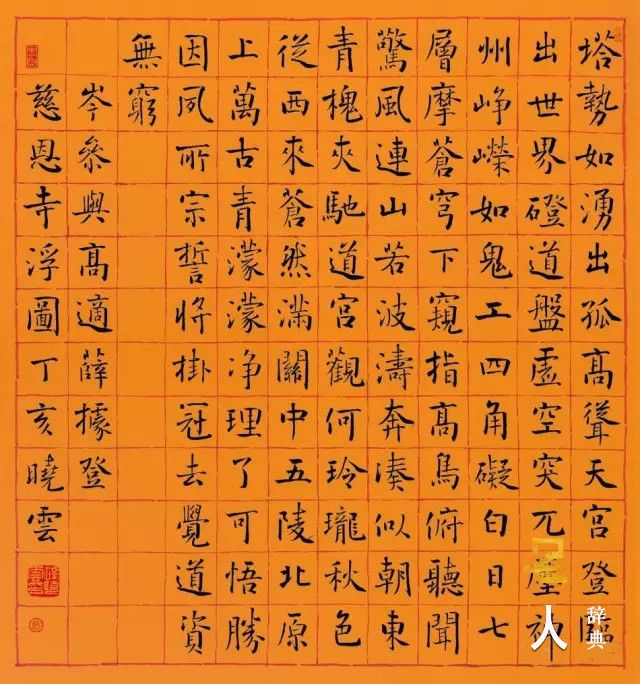 塔勢如湧出孤髙聳天宮登臨
出世界磴道盤虚空突兀壓神
州崢嶸如鬼工四角礙白日七
層摩蒼穹下窺指髙鳥俯聽聞
驚風連山若波濤奔湊似朝東
青槐夾馳道宮觀何玲瓏秋色
從西來蒼然滿關中五陵北原
上萬古青濛濛净理了可悟勝
因夙所宗誓將掛冠去覺道資
無窮
岑參與髙適薛據登
慈恩寺浮圖丁亥曉雲
人
辞典